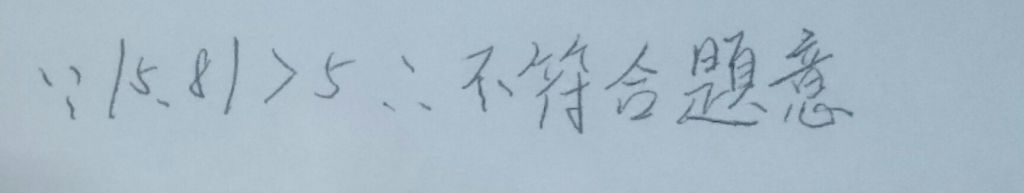 ∵|5.8|>5∴不符合題意